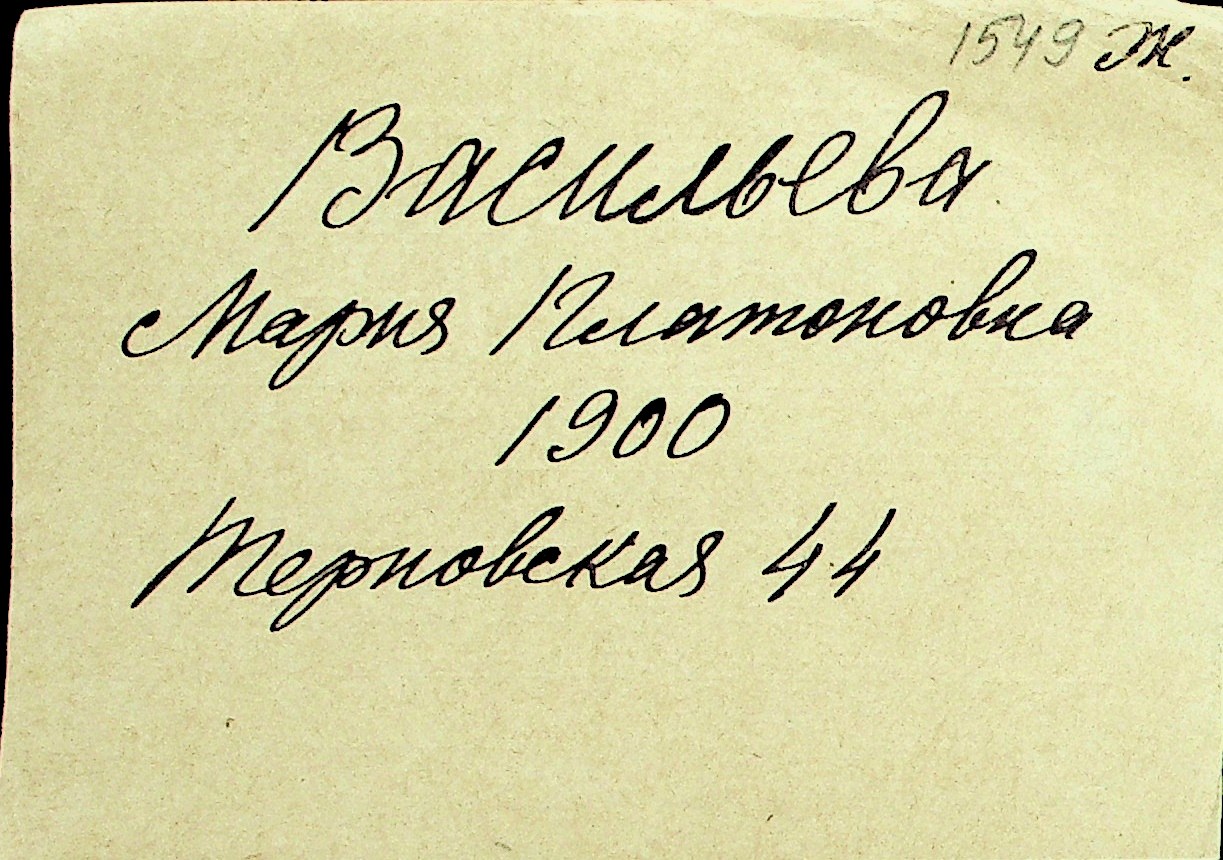 1549 Ж.
Васильева
Мария Платоновна
1900
Терновская 44